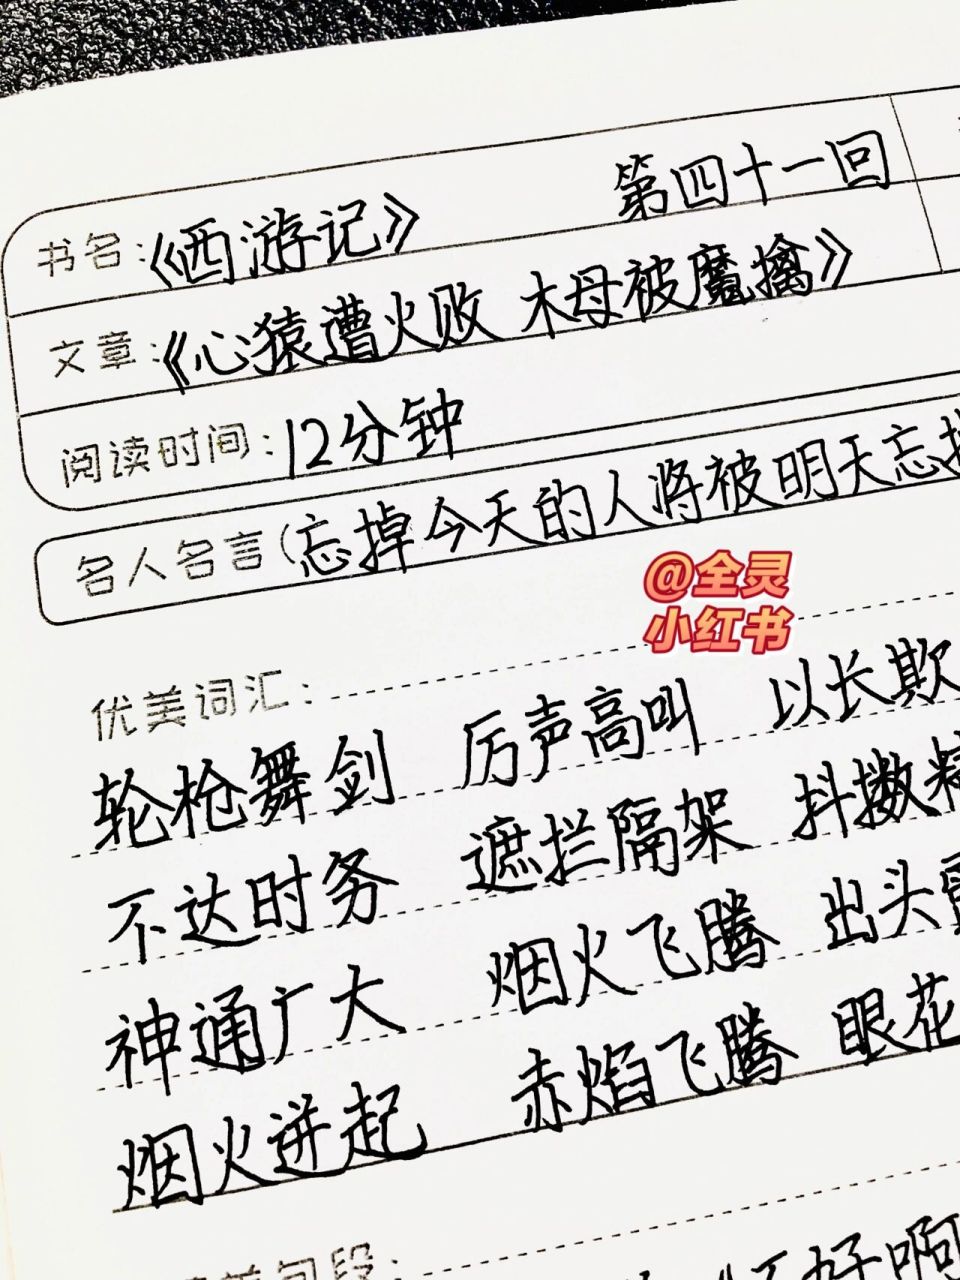 书名:《西游记》 第四十一回
文章:《心猿遭火败 木母被魔擒》
阅读时间:12分钟
名人名言(忘掉今天的人将被明天忘
@全灵
小红书
优美词汇:
轮枪舞剑 厉声高叫 以长欺
不达时务 遮拦隔架 抖擞精
神通广大 烟火飞腾 出头露
烟火迸起 赤焰飞腾 眼花
美句段:
好啊